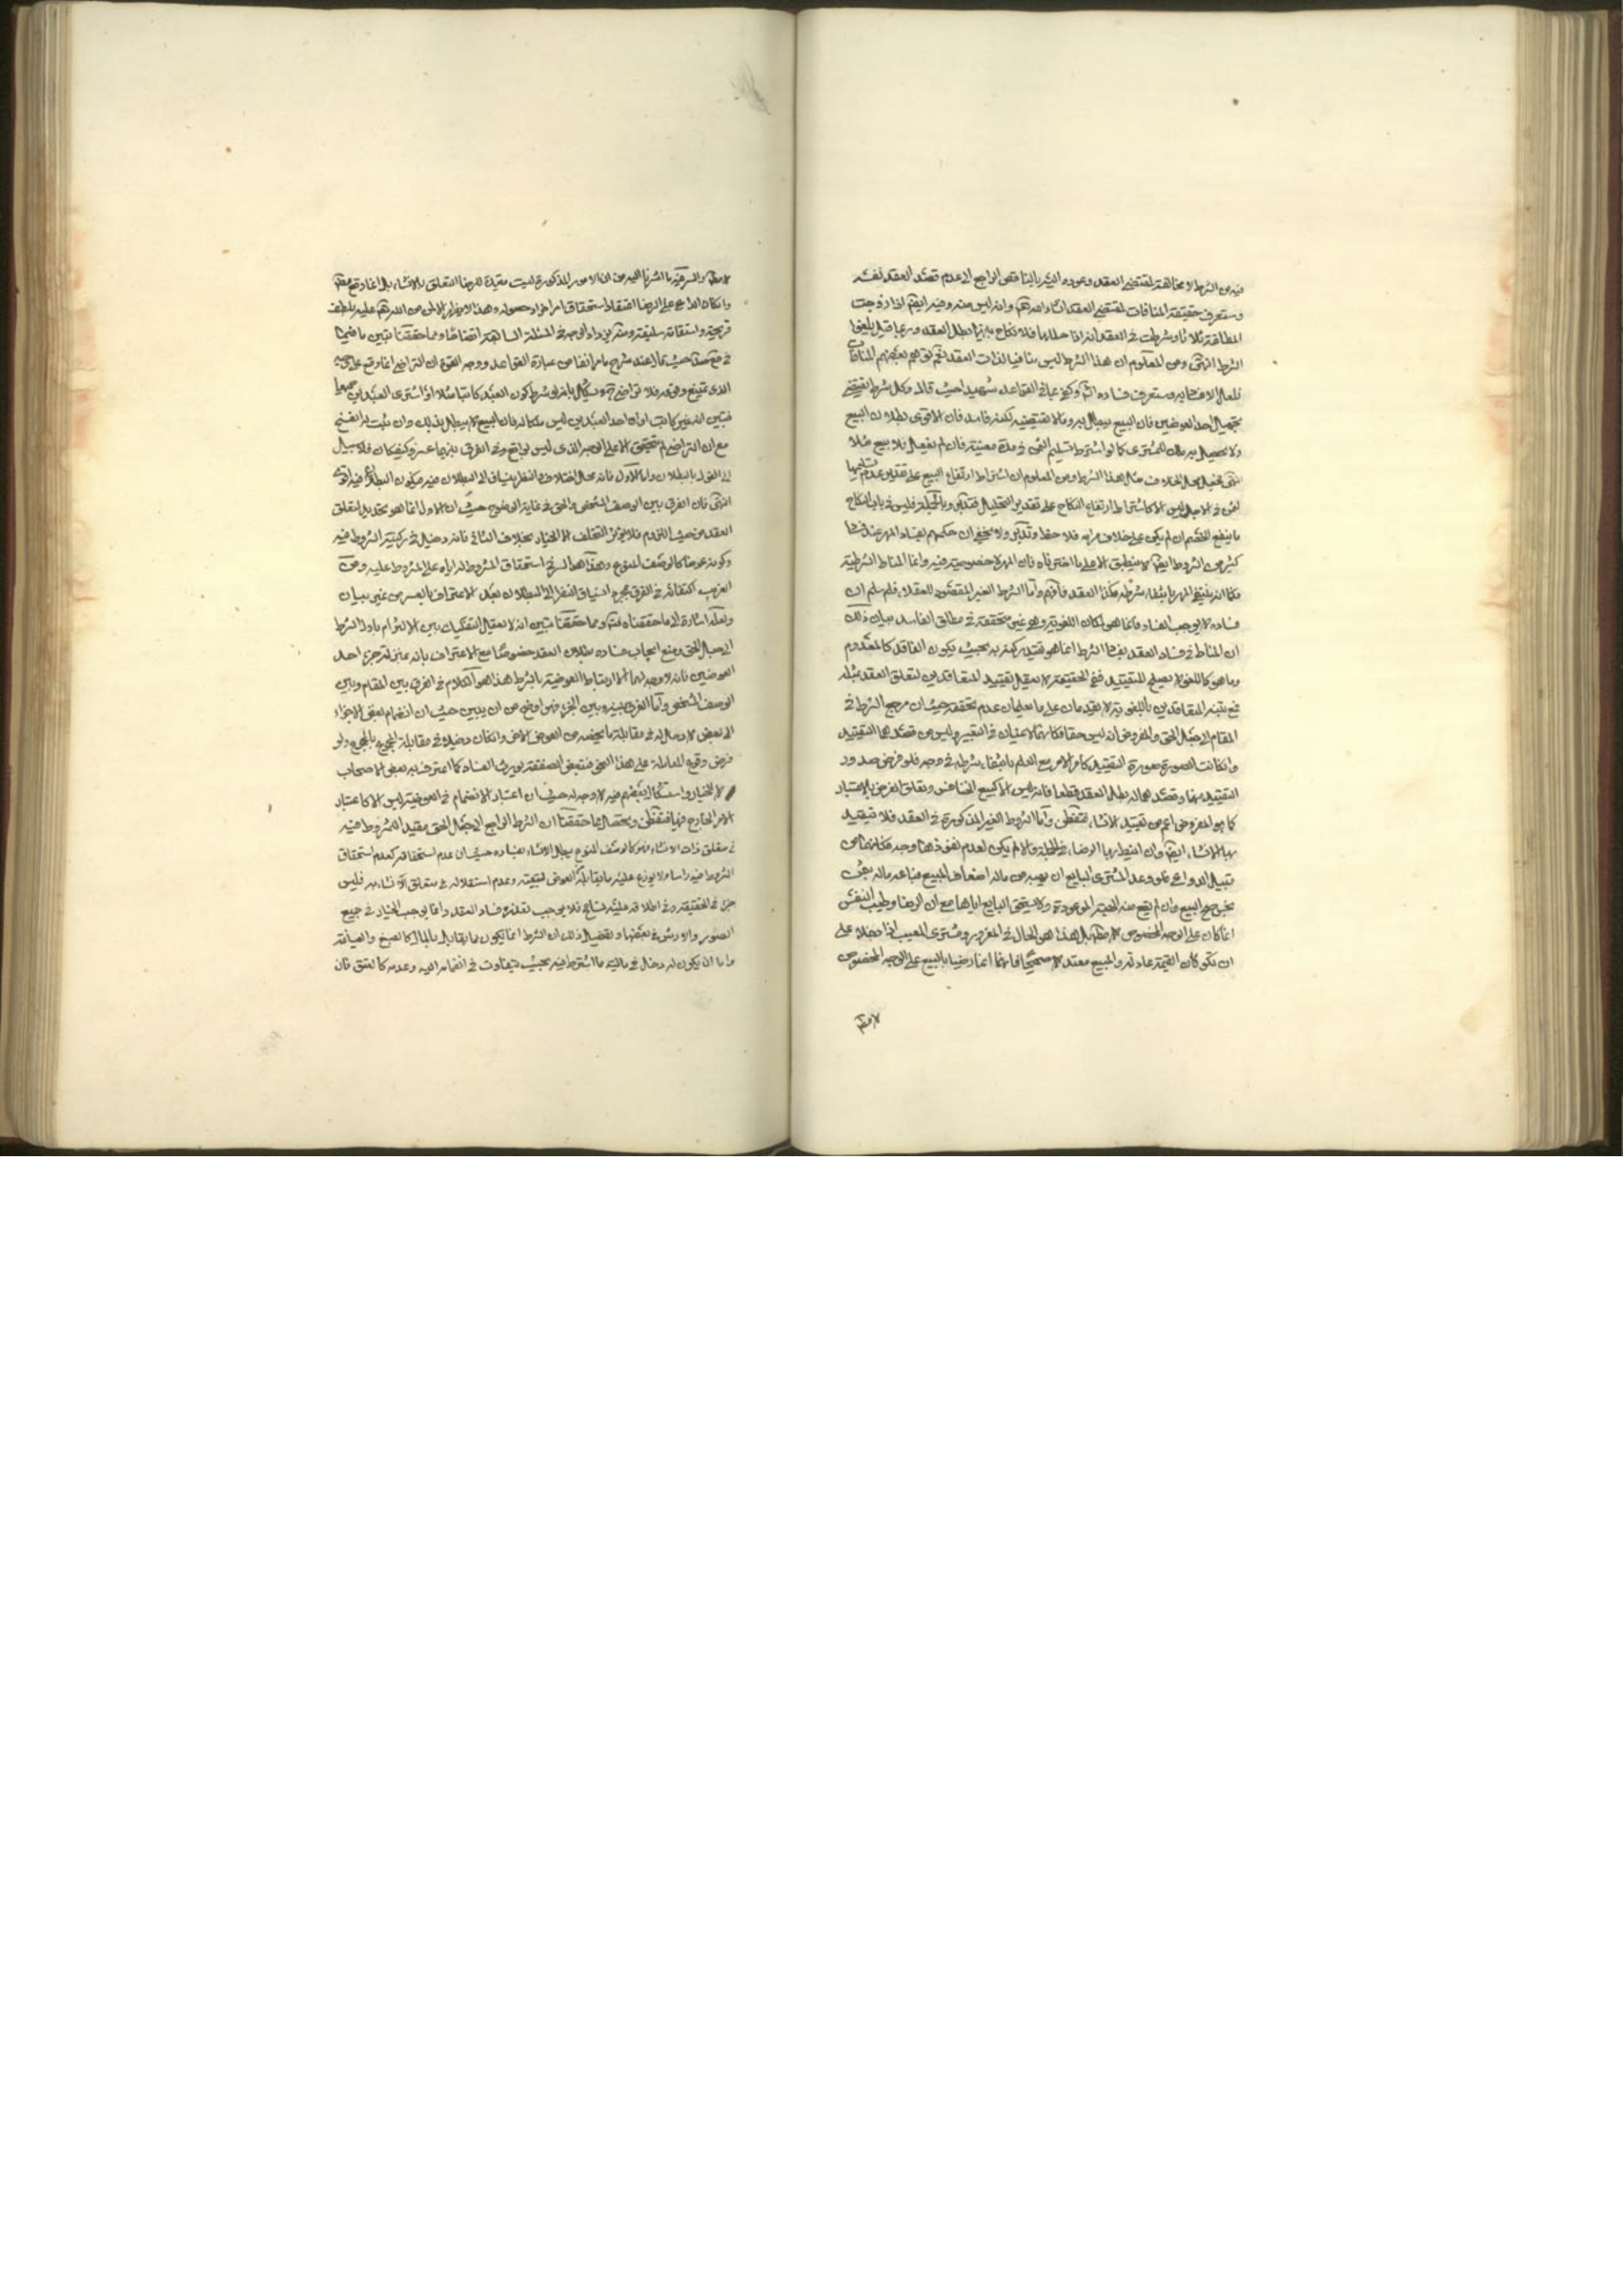 فيه من الشرط لا مخالفته لمقتضى العقد وعوده اليه بالتناقض الراجع الى عدم قصد العقد نفسه
وستعرف حقيقة المنافات لمقتضى العقد انشاء الله تعالى وانه ليس منه وفيه ايضا اذا تزوجت
المطلقة ثلاثا وشرطت في العقد انه اذا حللها فلا نكاح بينهما بطل العقد وربما قيل يلغوا
الشرط انتهى ومن المعلوم ان هذا الشرط ليس منافيا لذات العقد نعم توهم بعضهم المنافات
حيث قال وكل شرط يقتضي
تجهيل احد العوضين فان البيع يبطل به وما لا يقتضيه لكنه فاسد فان الاقوى بطلان البيع
ولا يحصل به ملك للمشتري كما لو اشترط تسليم الثمن في مدة معينة فان لم يفعل فلا بيع مثلا
انتهى فجعل محل الخلاف مثل هذا الشرط ومن المعلوم ان اشتراط ارتفاع البيع على تقدير عدم تسليم
الثمن في الاجل ليس الا كاشتراط ارتفاع النكاح على تقدير التحليل فتدبر وبالجملة فليس في باب النكاح
ما ينفع الخصم ان لم يكن على خلاف مرامه فلاحظ وتدبر ولا يخفى ان حكمهم بفساد المهر عند فساد
كثير من الشروط ايضا لا ينطبق الا على ما اخترناه فان المهر لا خصوصية فيه وانما المناط الشرطية
فكما انه ينتفي المهر بانتفاء شرطه فكذا العقد فافهم واما الشرط الغير المقصود للعقلاء فلم نسلم ان
فساده لا يوجب الفساد فانما هو لمكان اللغوية وهو غير متحققة في مطلق الفاسد بيان ذلك
ان المناط في فساد العقد بفساد الشرط انما هو تقييد ركنه به بحيث يكون الفاقد كالمعدوم
وما هو كاللغو لا يصلح للتقييد ففي الحقيقة لا يعقل تقييد المتعاقدين لمتعلق العقد بمثله
فمع تنبه المتعاقدين باللغوية لا يقيدان على ما يعلمان عدم تحققه حيث ان مرجع الشرط في
المقام الى جعل الحق والمفروض انه ليس حقا فكانهما لاغيان في التعبير وليس من قصدهما التقييد
وان كانت الصورة صورة التقييد كما مر الامر مع العلم بانتفاء شرطه في وجه فلو فرض صدور
التقييد منهما وقصدهما له بطل العقد قطعا فانه ليس الا كبيع الخنافس وتعلق الغرض بالاعتبار
كما هو المفروض اعم من تقييد الانشاء فتفطن واما الشروط الغير المذكورة في العقد فلا تقييد
بها للانشاء ايضا وان انيط بها الرضاء في الجملة والا لم يكن لعدم نفوذها وجه فكانها من
قبيل الدواعي فلو وعد المشتري البايع ان يهبه من ماله اضعاف المبيع فباعه ماله بثمن
بخس صح البيع وان لم يقع منه الهبة الموعودة ولا يستحق البايع اياها مع ان الرضا وطيب النفس
انما كان على الوجه المخصوص لا مطلقا بل هذا هو الحال في المغرور ومشتري المعيب اذا دخلا على
ان تكون القيمة عادلة والمبيع معتدلا صحيحا فانهما انما رضيا بالبيع على الوجه المخصوص
لا مطلقا
لا مطلقا والسر فيه ما اشرنا اليه من ان الامور المذكورة ليست مقيدة للرضا المتعلق بالانشاء بل انما وقع مطلقا
وان كان الداعي على الرضا اعتقاد استحقاق امر اخر او حصوله وهذا
قريحة واستقامة سليقة ومنه يزداد الوجه في المسئلة السابقة اتضاحا ومما حققنا تبين ما فيما
حيث قال عند شرح ما مر انفا من عبارة القواعد ووجه القوة ان التراضي انما وقع على الوجه
الذي يمتنع وقوعه فلا تراضي ويشكل بما لو شرط كون العبد كاتبا مثلا او اشترى العبدين جميعا
فتبين انه غير كاتب او ان احد العبدين ليس ملكا له فان البيع لا يبطل بذلك وان ثبت له الفسخ
مع ان التراضي لم يتحقق الا على الوجه الذي ليس بواقع وفي الفرق بينهما عسر وكيف كان فلا سبيل
الى القول بالبطلان
انتهى فان الفرق بين الوصف الشخصي والحق في غاية الوضوح حيث ان الاول انما هو تحديد لمتعلق
العقد من حيث اللزوم فلا يؤثر التخلف الا الخيار بخلاف الثاني فانه دخيل في ركنية المشروط فيه
وكونه عوضا كالوصف المنوع وهذا هو السر في استحقاق المشروط له اياه على المشروط عليه ومن
الغريب اكتفائه في الفرق بمجرد انسياق النظر الى البطلان بعد الاعتراف بالعسر من غير بيان
ولعله اشارة الى ما حققناه فتدبر ومما حققنا تبين انه لا يعقل التفكيك بين الالتزام بان الشرط
الى جعل الحق ومنع ايجاب فساده بطلان العقد خصوصا مع الاعتراف بانه بمنزلة جزء احد
العوضين فانه لا وجه لهما الا ارتباط العوضية بالشرط هذا هو الكلام في الفرق بين المقام وبين
الوصف الشخصي واما الفرق بينه وبين الجزء فهو اوضح من ان يبين حيث ان انضمام بعض الاجزاء
الى بعض لا دخل له في مقابلة ما يخصه من العوض الاخر وان كان دخيلا في مقابلة المجموع بالمجموع ولو
فرض وقوع المعاملة على هذا النحو فتبعض الصفقة يورث الفساد كما اعترف به بعض الاصحاب
لا الخيار واستشكال بعضهم فيه لا وجه له حيث ان اعتبار الانضمام في العوضية ليس الا كاعتبار
الامر الخارج فيها فتفطن ويحصل مما حققنا ان الشرط الراجع الى جعل الحق مقيد للمشروط فيه
في متعلق ذات الانشاء فهو كالوصف المنوع يبطل الانشاء بفساده حيث ان عدم استحقاقه كعدم استحقاق
المشروط فيه راسا ولا يوزع عليه ما يقابله العوض لتبعيته وعدم استقلاله في متعلق الانشاء به فليس
جزء في الحقيقة وفي اطلاقه عليه تسامح فلا يوجب تعذره فساد العقد وانما يوجب الخيار في جميع
الصور والارش في بعضها وتفصيل ذلك ان الشرط اما يكون مما يقابل بالمال كالصبغ والصياغة
واما ان يكون له دخل في مالية ما اشترط فيه بحيث يتفاوت في انضمامه اليه وعدمه كالعتق فان